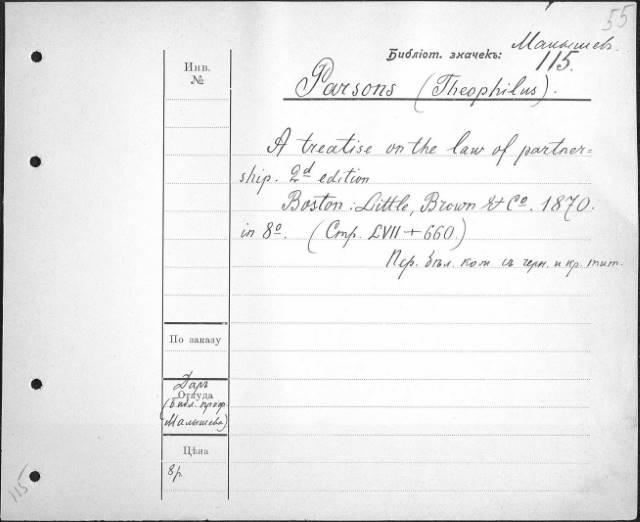 55
Малышев.
Библіот. значекъ: 115.
Инв.
№
Parsons (Theophilus).
A treatise on the law of partner=
ship. 2d edition
Boston: Little, Brown & Co. 1870.
in 8o. (Стр. LVII + 660)
Пер. бѣл. кож съ черн. и кр. тит.
По заказу
Даръ
Откуда
(Библ. проф.
Малышева)
Цѣна
8 р.
115